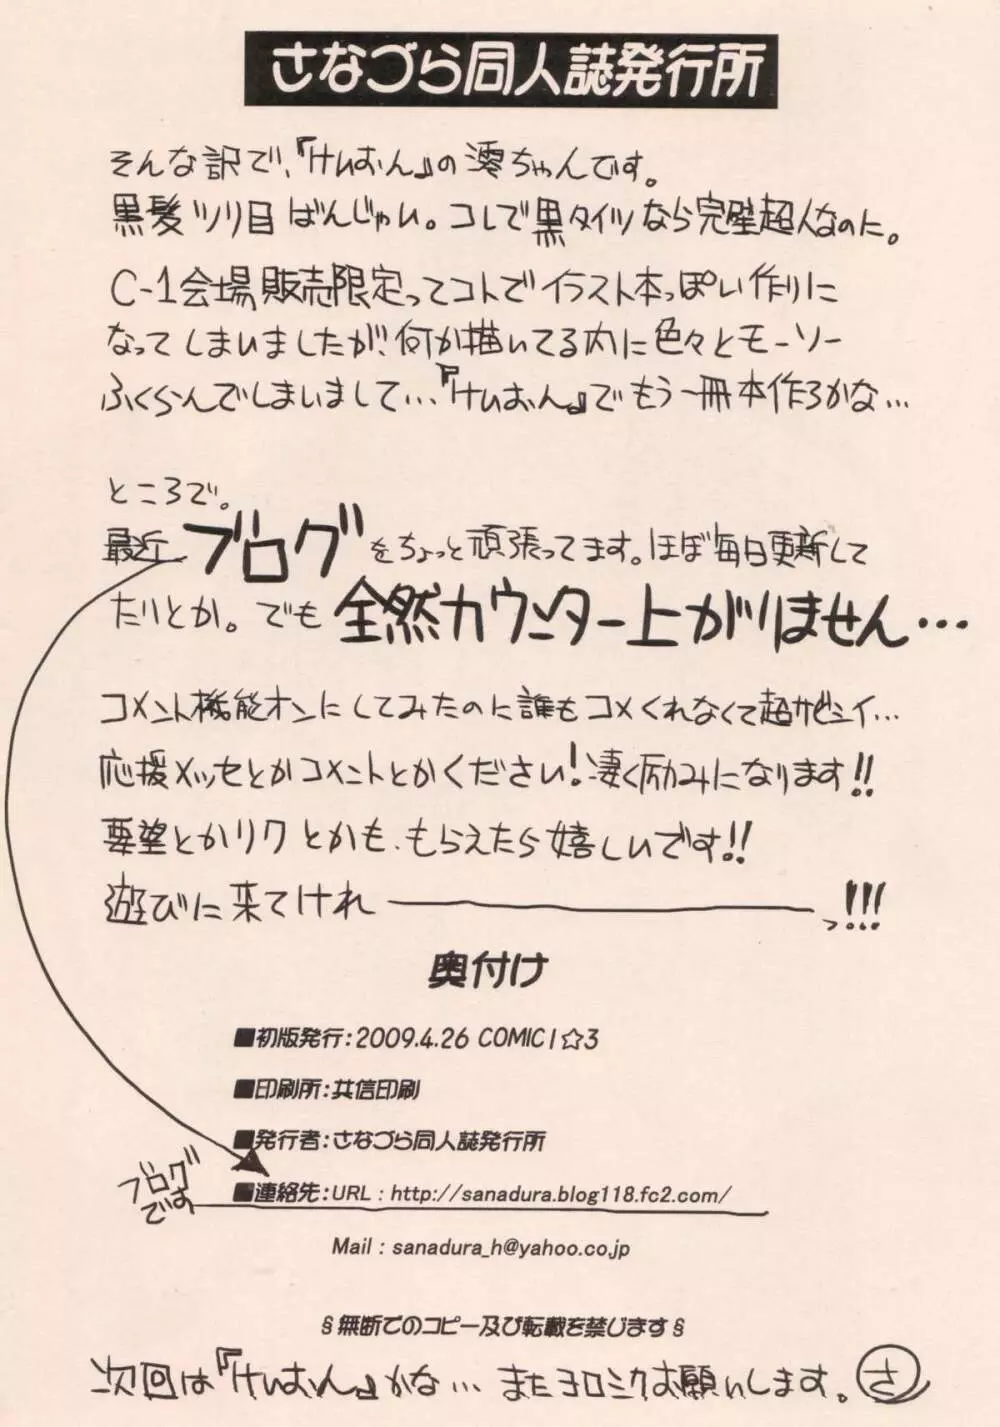 さなづら同人誌発行所
そんな訳で、『けいおん』の澪ちゃんです。
黒髪ツリ目ばんじゃい。コレで黒タイツなら完璧超人なのに。
C-1会場販売限定ってコトでイラスト本っぽい作りに
なってしまいましたが!何か描いてる内に色々とモーソー
ふくらんでしまいまして…『けいおん』でもう一冊本作ろかな…
ところで。
最近ブログをちょっと頑張ってます。ほぼ毎日更新して
たりとか。でも全然カウンター上がりません…
コメント機能オンにしてみたのに誰もコメくれなくて超サビシイ…
応援メッセとかコメントとかください!凄く励みになります!!
要望とかリクとかも、もらえたら嬉しいです!!
遊びに来てけれ――――――っ!!!
奥付け
■初版発行:2009.4.26 COMIC1☆3
■印刷所:共信印刷
■発行者:さなづら同人誌発行所
ブログです
■連絡先:URL:http://sanadura.blog118.fc2.com/
Mail:sanadura_h@yahoo.co.jp
§無断でのコピー及び転載を禁じます§
次回は『けいおん』かな…またヨロシクお願いします。さ